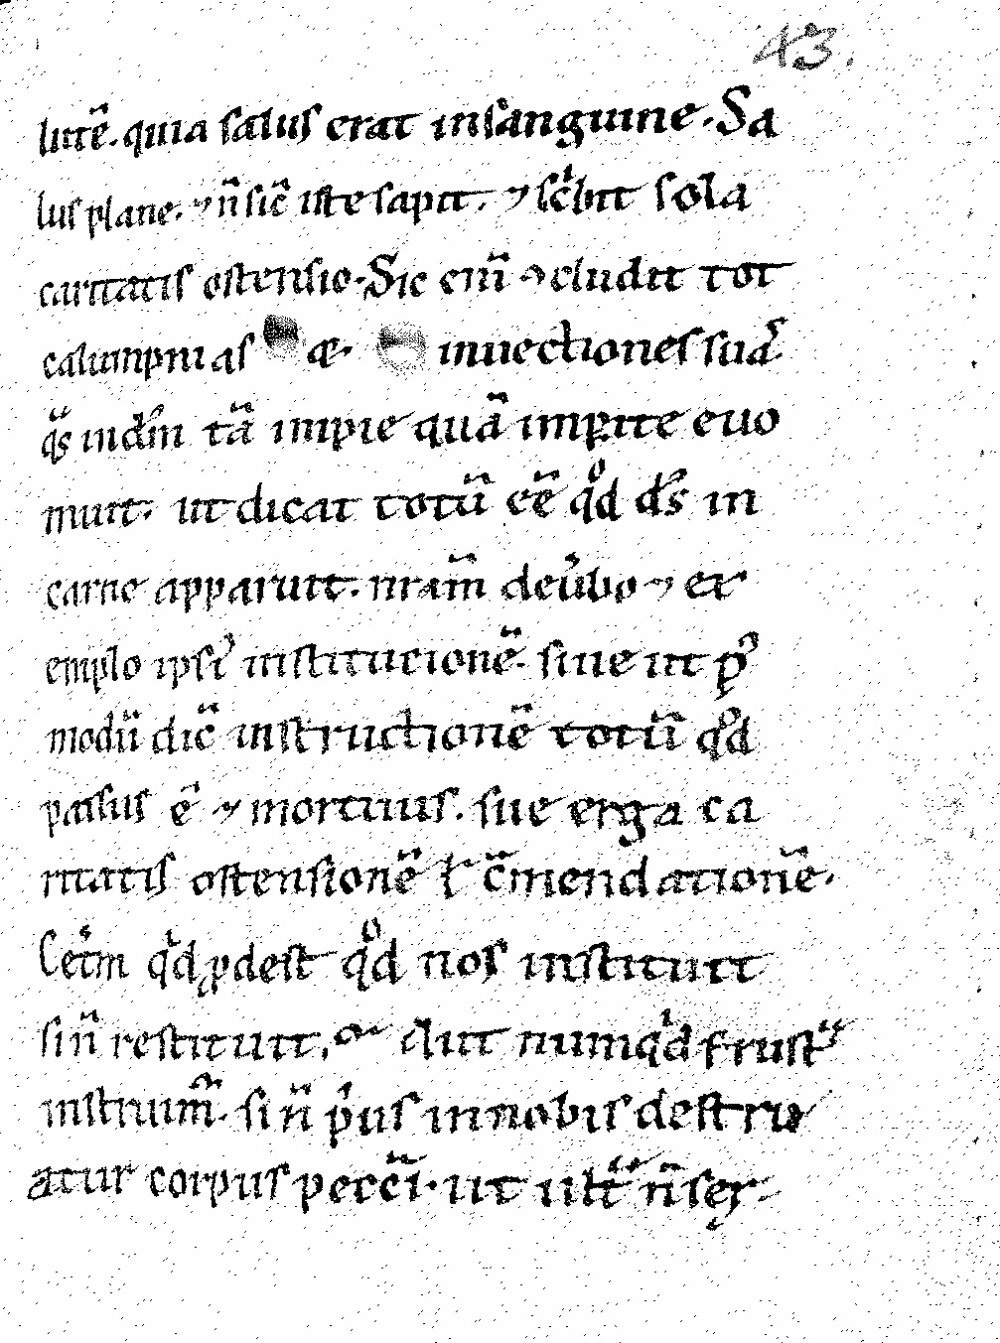 43.
lutē. quia salus erat in sanguine. Sa
lus plane. ⁊ n̄ sic̄ iste sapit. ⁊ scͥbit sola
caritatis ostensio. Sic eni̅ ꝯcludit tot
calumpnias æ. inuectiones suas
q̄s in dm̄ tā impie quā imꝑite euo
muit. ut dicat totū eē qͦd ds̄ in
carne apparuit. nrām de ūbo ⁊ ex
emplo ipsiꝰ institucionē. siue ut pꝰ
modū dic̄ instructionē totū qͦd
passus ē ⁊ mortuus. sue erga ca
ritatis ostensionē ł c̄mendationē.
Cetm̄ qͥd ꝓdest qͦd nos instituit
si n̄ restituit. Aut numqͥd frustᵃ
instruim̄. si n̄ pͥus in nobis destru
atur corpus pecc̄i. ut ult̄ n̄ ser